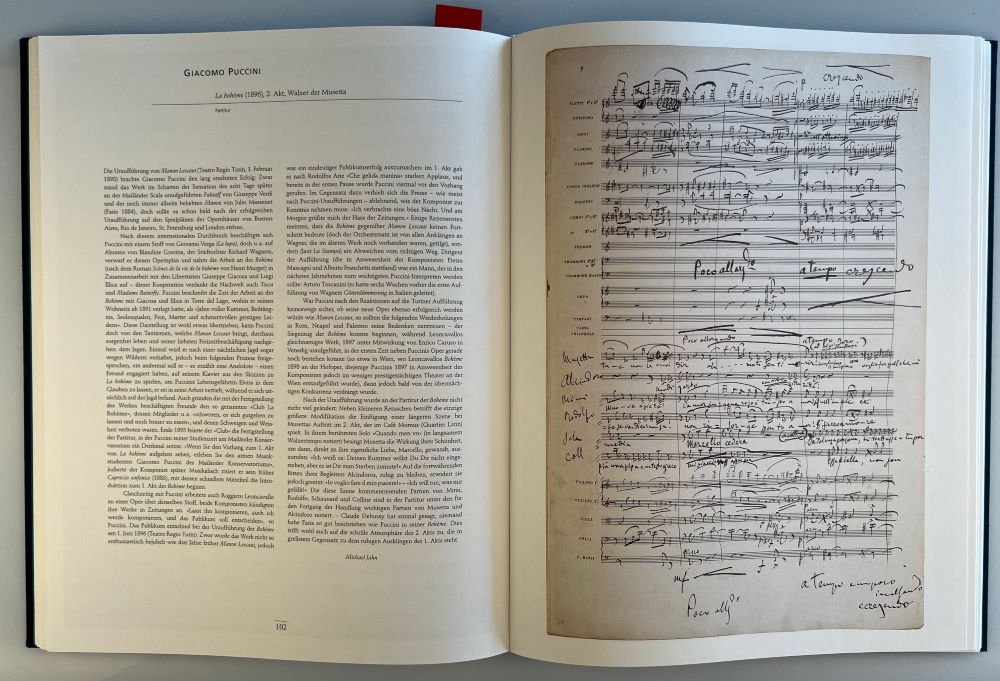 GIACOMO PUCCINI
La bohème (1896), 2. Akt, Walzer der Musetta
Partitur
Die Uraufführung von Manon Lescaut (Teatro Regio Turin, 1. Februar
1893) brachte Giacomo Puccini den lang ersehnten Erfolg. Zwar
stand das Werk im Schatten der Sensation des acht Tage später
an der Mailänder Scala uraufgeführten Falstaff von Giuseppe Verdi
und der noch immer allseits beliebten Manon von Jules Massenet
(Paris 1884), doch sollte es schon bald nach der erfolgreichen
Uraufführung auf den Spielplänen der Opernhäuser von Buenos
Aires, Rio de Janeiro, St. Petersburg und London stehen.
Nach diesem internationalen Durchbruch beschäftigte sich
Puccini mit einem Stoff von Giovanni Verga (La lupa), doch u. a. auf
Abraten von Blandine Gravina, der Stieftochter Richard Wagners,
verwarf er diesen Opernplan und nahm die Arbeit an der Bohème
(nach dem Roman Scènes de la vie de la bohème von Henri Murger) in
Zusammenarbeit mit den Librettisten Giuseppe Giacosa und Luigi
Illica auf – dieser Kooperation verdankt die Nachwelt auch Tosca
und Madama Butterfly. Puccini beschreibt die Zeit der Arbeit an der
Bohème mit Giacosa und Illica in Torre del Lago, wohin er seinen
Wohnsitz ab 1891 verlegt hatte, als »Jahre voller Kummer, Bedräng-
nis, Seelenqualen, Pein, Marter und schmerzvollen geistigen Lei-
dens«. Diese Darstellung ist wohl etwas übertrieben, kann Puccini
doch von den Tantiemen, welche Manon Lescaut bringt, durchaus
sorgenfrei leben und seiner liebsten Freizeitbeschäftigung nachge-
hen: dem Jagen. Einmal wird er nach einer nächtlichen Jagd sogar
wegen Wilderns verhaftet, jedoch beim folgenden Prozess freige-
sprochen, ein andermal soll er – so erzählt eine Anekdote – einen
Freund engagiert haben, auf seinem Klavier aus den Skizzen zu
La bohème zu spielen, um Puccinis Lebensgefährtin Elvira in dem
Glauben zu lassen, er sei in seine Arbeit vertieft, während er sich tat-
sächlich auf der Jagd befand. Auch gründen die mit der Fertigstellung
des Werkes beschäftigten Freunde den so genannten »Club La
Bohème«, dessen Mitglieder u. a. »schwören, es sich gutgehen zu
lassen und noch besser zu essen«, und denen Schweigen und Weis-
heit verboten waren. Ende 1895 feierte der »Club« die Fertigstellung
der Partitur, in der Puccini seiner Studienzeit am Mailänder Konser-
vatorium ein Denkmal setzte: »Wenn Sie den Vorhang zum 1. Akt
von La bohème aufgehen sehen, erleben Sie den armen Musik-
studenten Giacomo Puccini des Mailänder Konservatoriums«,
äußerte der Komponist später. Musikalisch zitiert er sein frühes
Capriccio sinfonico (1883), mit dessen schnellem Mittelteil die Intro-
duktion zum 1. Akt der Bohème beginnt.
Gleichzeitig mit Puccini arbeitete auch Ruggiero Leoncavallo
an einer Oper über denselben Stoff, beide Komponisten kündigten
ihre Werke in Zeitungen an. »Lasst ihn komponieren, auch ich
werde komponieren, und das Publikum soll entscheiden«, so
Puccini. Das Publikum entschied bei der Uraufführung der Bohème
am 1. Juni 1896 (Teatro Regio Turin). Zwar wurde das Werk nicht so
enthusiastisch bejubelt wie drei Jahre früher Manon Lescaut, jedoch
war ein eindeutiger Publikumserfolg auszumachen: im 1. Akt gab
es nach Rodolfos Arie »Che gelida manina« starken Applaus, und
bereits in der ersten Pause wurde Puccini viermal vor den Vorhang
gerufen. Im Gegensatz dazu verhielt sich die Presse – wie meist
nach Puccini-Uraufführungen – ablehnend, wie der Komponist zur
Kenntnis nehmen muss: »Ich verbrachte eine böse Nacht. Und am
Morgen grüßte mich der Hass der Zeitungen.« Einige Rezensenten
meinten, dass die Bohème gegenüber Manon Lescaut keinen Fort-
schritt bedeute (doch der Orchestersatz ist von allen Anklängen an
Wagner, die im älteren Werk noch vorhanden waren, getilgt), son-
dern (laut La Stampa) ein Abweichen vom richtigen Weg. Dirigent
der Aufführung (die in Anwesenheit der Komponisten Pietro
Mascagni und Alberto Franchetti stattfand) war ein Mann, der in den
nächsten Jahrzehnten zum wichtigsten Puccini-Interpreten werden
sollte: Arturo Toscanini (er hatte sechs Wochen vorher die erste Auf-
führung von Wagners Götterdämmerung in Italien geleitet).
War Puccini nach den Reaktionen auf die Turiner Aufführung
keineswegs sicher, ob seine neue Oper ebenso erfolgreich werden
würde wie Manon Lescaut, so sollten die folgenden Wiederholungen
in Rom, Neapel und Palermo seine Bedenken zerstreuen – der
Siegeszug der Bohème konnte beginnen, während Leoncavallos
gleichnamiges Werk, 1897 unter Mitwirkung von Enrico Caruso in
Venedig uraufgeführt, in der ersten Zeit neben Puccinis Oper gerade
noch bestehen konnte (so etwa in Wien, wo Leoncavallos Bohème
1898 an der Hofoper, diejenige Puccinis 1897 in Anwesenheit des
Komponisten jedoch im weniger prestigeträchtigen Theater an der
Wien erstaufgeführt wurde), dann jedoch bald von der übermäch-
tigen Konkurrenz verdrängt wurde.
Nach der Uraufführung wurde an der Partitur der Bohème nicht
mehr viel geändert: Neben kleineren Retuschen betrifft die einzige
größere Modifikation die Einfügung einer längeren Szene bei
Musettas Auftritt im 2. Akt, der im Café Momus (Quartier Latin)
spielt. In ihrem berühmten Solo »Quando men vo« (in langsamem
Walzertempo notiert) besingt Musetta die Wirkung ihrer Schönheit,
um dann, direkt an ihre eigentliche Liebe, Marcello, gewandt, aus-
zurufen: »Ich weiß es: Deinen Kummer willst Du Dir nicht einge-
stehen, aber es ist Dir zum Sterben zumute!« Auf die fortwährenden
Bitten ihres Begleiters Alcindoros, ruhig zu bleiben, erwidert sie
jedoch gereizt: »Io voglio fare il mio piacere!« – »Ich will tun, was mir
gefällt!« Die diese Szene kommentierenden Partien von Mimì,
Rodolfo, Schaunard und Colline sind in der Partitur unter den für
den Fortgang der Handlung wichtigen Partien von Musetta und
Alcindoro notiert. – Claude Debussy hat einmal gesagt, niemand
habe Paris so gut beschrieben wie Puccini in seiner Bohème. Dies
trifft wohl auch auf die schrille Atmosphäre des 2. Akts zu, die in
grellstem Gegensatz zu dem ruhigen Ausklingen des 1. Akts steht.
Michael Jahn
102
crescendo
FLAUTI
OTTAVINO
OBOI
CLARINI
CLARONE
CORNO INGLESE
FAGOTTI
CORNI
TROMBE
TROMBONI
TROMBONE BASSO
Poco allargdo
a tempo crescendo
ARPA
TIMPANI
CASSA
TRIANGOLO
Poco allargando
a tempo
Musetta
Alcindoro
Mimì
Rodolfo
Sch
Coll
Marcello cederà
VIOLINI
VIOLE
CELLI
C. BASSI
mf
Poco allgdo
a tempo un poco
incalzando
crescendo